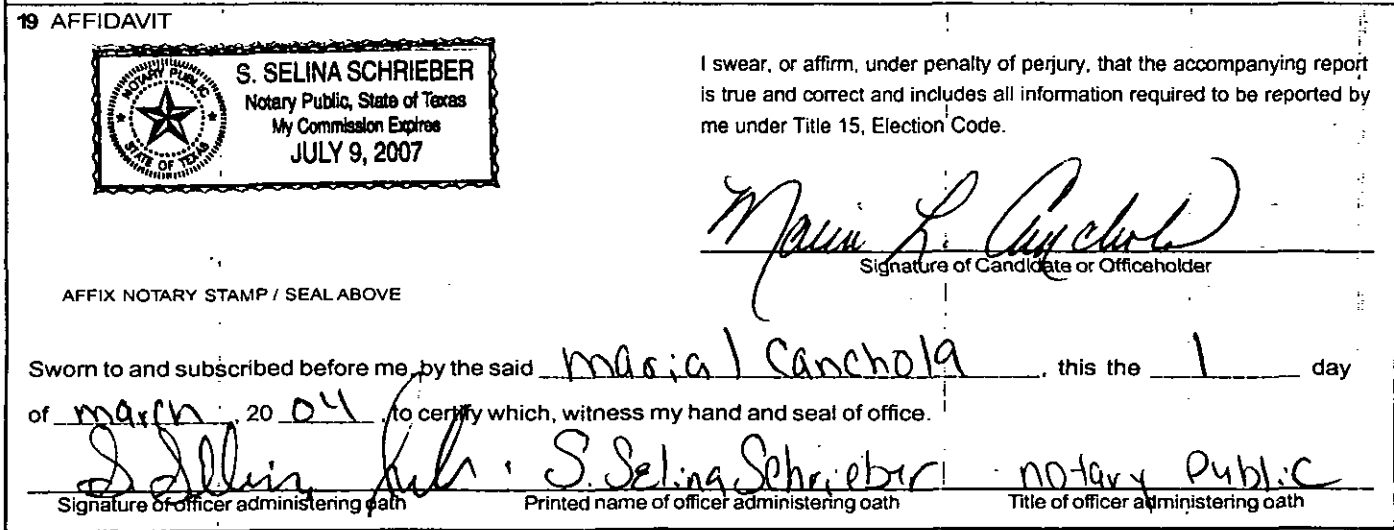 19 AFFIDAVIT
NOTARY PUBLIC
STATE OF TEXAS
S. SELINA SCHRIEBER
Notary Public, State of Texas
My Commission Expires
JULY 9, 2007
I swear, or affirm, under penalty of perjury, that the accompanying report
is true and correct and includes all information required to be reported by
me under Title 15, Election Code.
Maria L. Canchola
Signature of Candidate or Officeholder
AFFIX NOTARY STAMP / SEAL ABOVE
Sworn to and subscribed before me, by the said maria l Canchola, this the 1 day
of march, 20 04, to certify which, witness my hand and seal of office.
S. Selina S. Selina Schrieber notary Public
Signature of officer administering oath Printed name of officer administering oath Title of officer administering oath